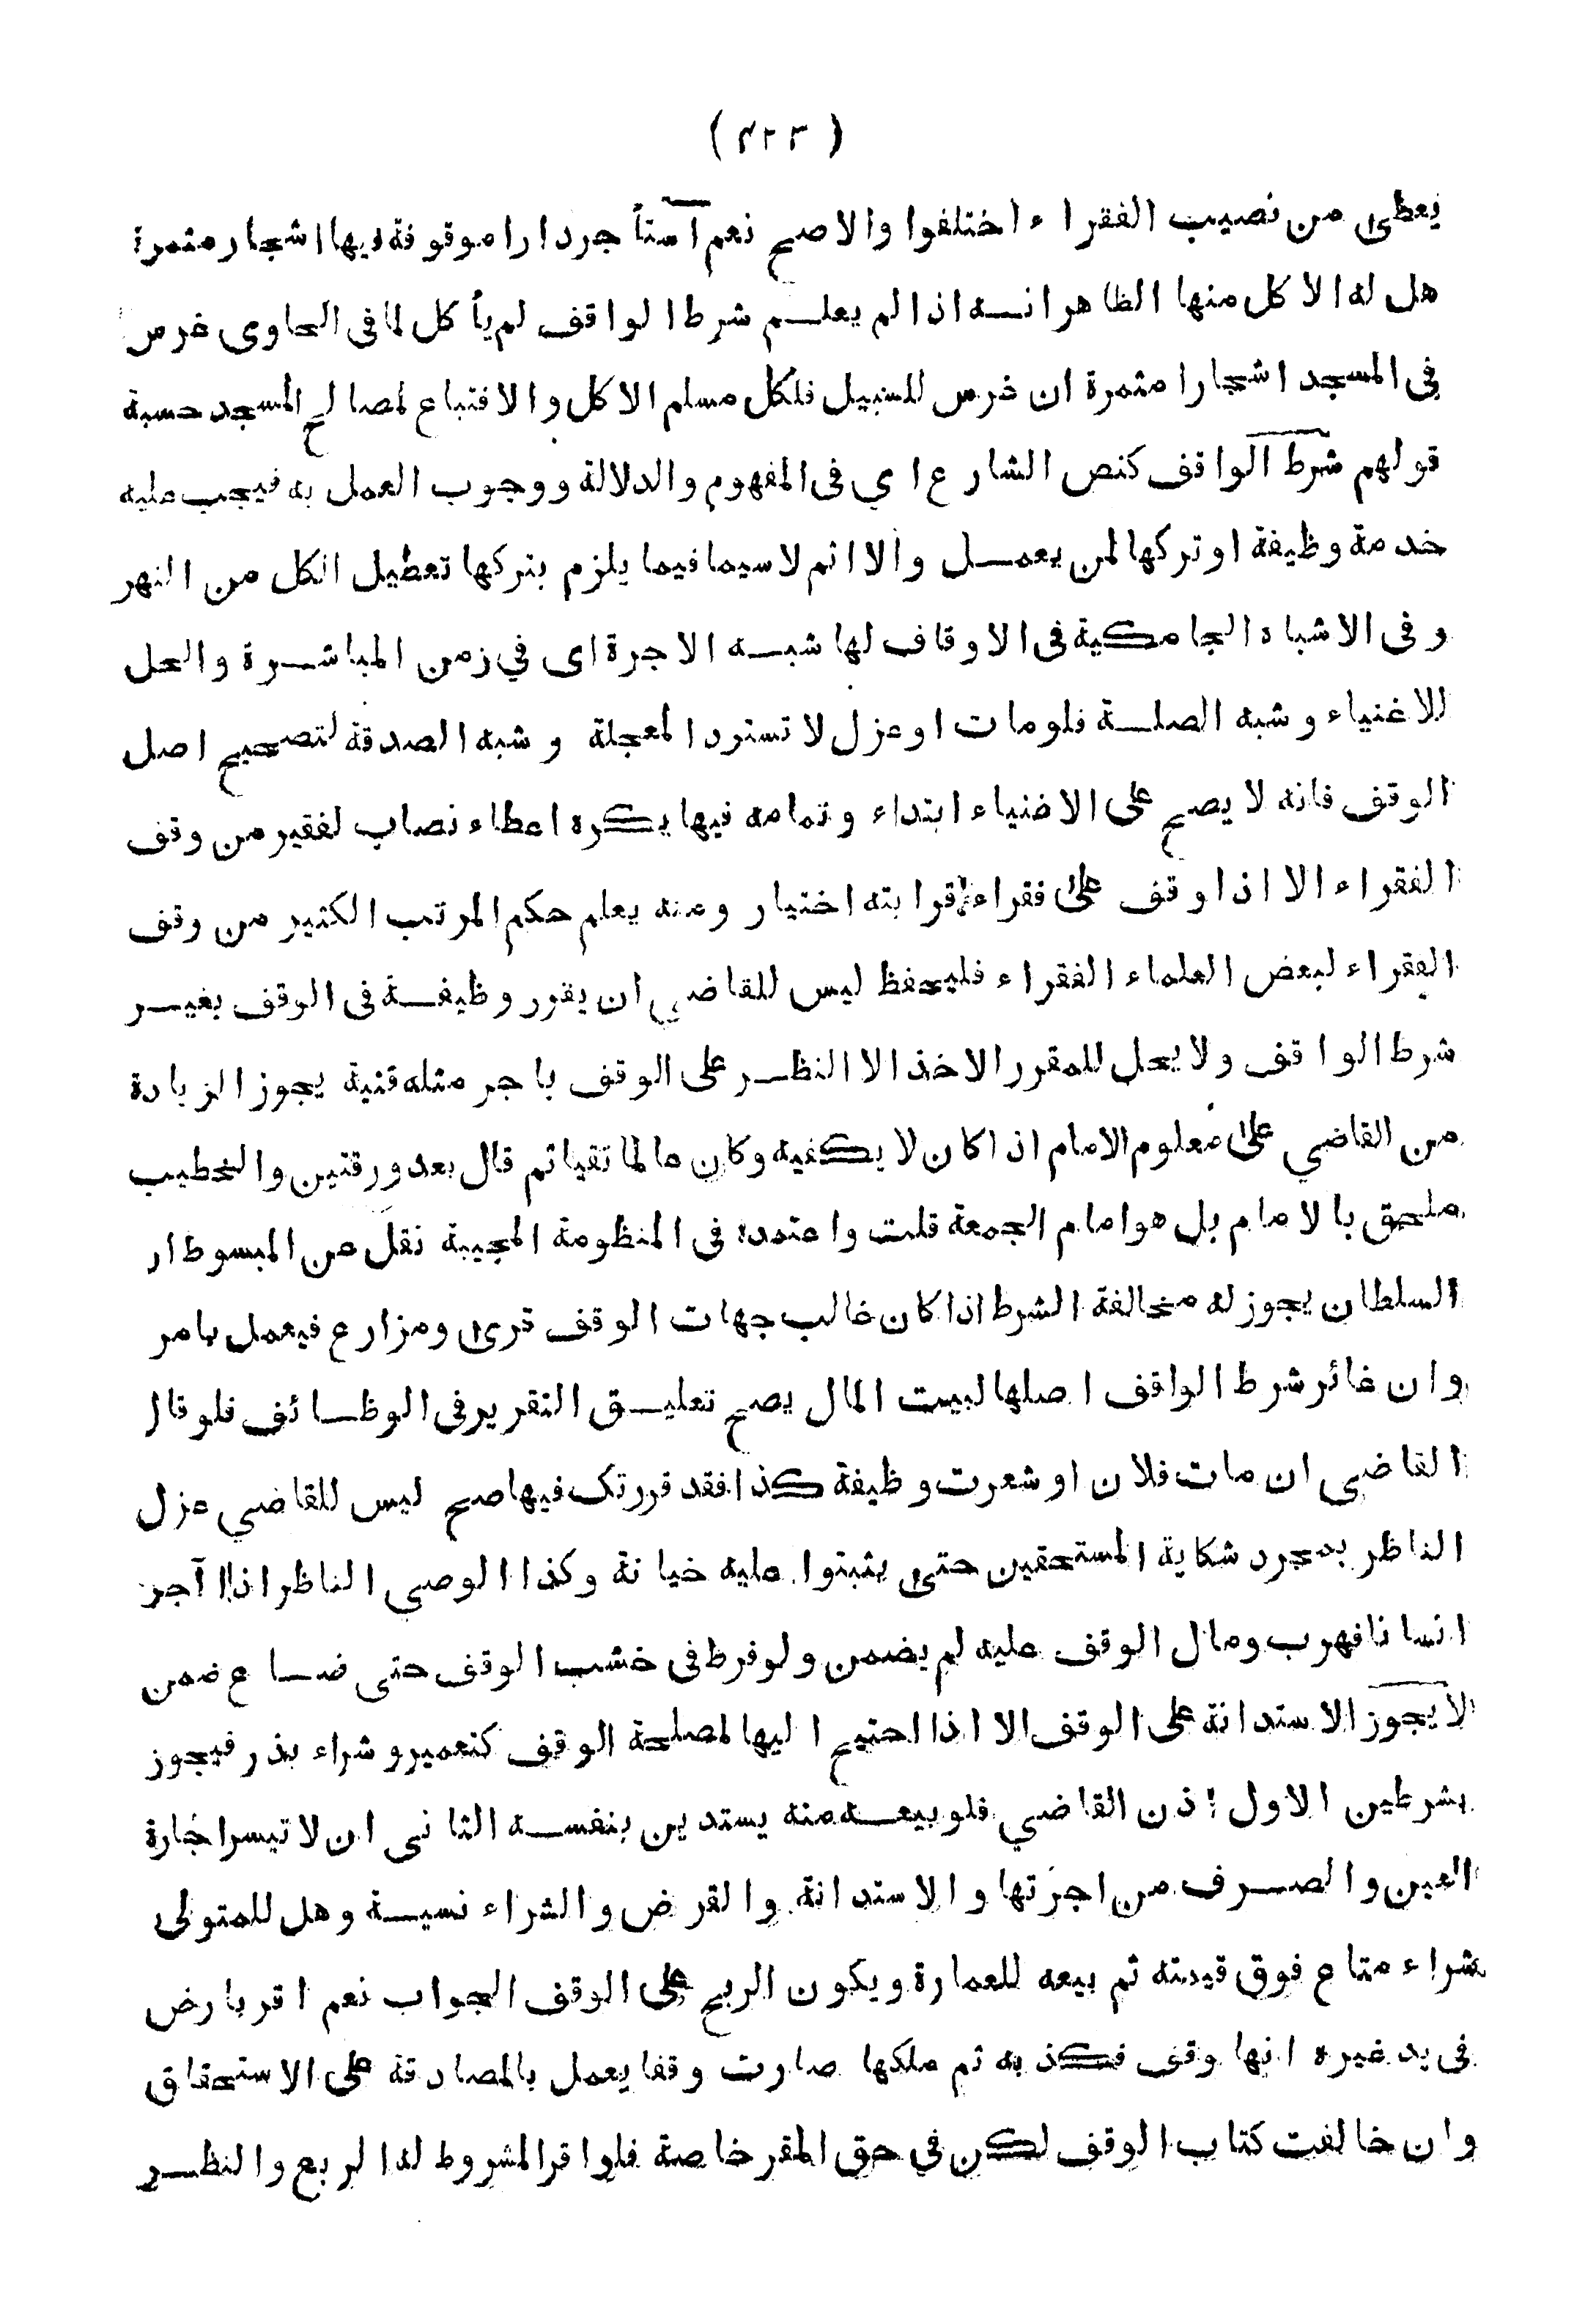 ( ٤٢٣ )
يعطى من نصيب الفقراء اختلفوا والاصح نعم استأجر دارا موقوفة فيها اشجار مثمرة
هل له الاكل منها الظاهر انه اذا لم يعلم شرط الواقف لم يأكل لما فى الحاوى غرس
فى المسجد اشجارا مثمرة ان غرس للسبيل فلكل مسلم الاكل والا فتباع لمصالح المسجد حسبة
قولهم شرط الواقف كنص الشارع اي فى المفهوم والدلالة ووجوب العمل به فيجب عليه
خدمة وظيفة او تركها لمن يعمل والا اثم لاسيما فيما يلزم بتركها تعطيل الكل من النهر
وفى الاشباه الجامكية فى الاوقاف لها شبه الاجرة اى في زمن المباشرة والحل
للاغنياء وشبه الصلة فلو مات او عزل لا تسترد المعجلة وشبه الصدقة لتصحيح اصل
الوقف فانه لا يصح على الاغنياء ابتداء وتمامه فيها يكره اعطاء نصاب لفقير من وقف
الفقراء الا اذا وقف على فقراء قرابته اختيار ومنه يعلم حكم المرتب الكثير من وقف
الفقراء لبعض العلماء الفقراء فليحفظ ليس للقاضي ان يقرر وظيفة فى الوقف بغير
شرط الواقف ولا يحل للمقرر الاخذ الا النظر على الوقف باجر مثله قنية يجوز الزيادة
من القاضي على معلوم الامام اذا كان لا يكفيه وكان عالما تقيا ثم قال بعد ورقتين والخطيب
ملحق بالامام بل هو امام الجمعة قلت واعتمده فى المنظومة المحبية نقل عن المبسوط ان
السلطان يجوز له مخالفة الشرط اذا كان غالب جهات الوقف قرى ومزارع فيعمل بامر
وان غائر شرط الواقف اصلها لبيت المال يصح تعليق التقرير فى الوظائف فلو قال
القاضي ان مات فلان او شعرت وظيفة كذا فقد قررتك فيها صح ليس للقاضي عزل
الناظر بمجرد شكاية المستحقين حتى يثبتوا عليه خيانة وكذا الوصي الناظر اذا آجر
انسانا فهرب ومال الوقف عليه لم يضمن ولو فرط فى خشب الوقف حتى ضاع ضمن
لا يجوز الاستدانة على الوقف الا اذا احتيج اليها لمصلحة الوقف كتعمير وشراء بذر فيجوز
بشرطين الاول اذن القاضي فلو بيعه منه يستدين بنفسه الثانى ان لا تيسر اجارة
العين والصرف من اجرتها والاستدانة والقرض والشراء نسية وهل للمتولى
شراء متاع فوق قيمته ثم بيعه للعمارة ويكون الربح على الوقف الجواب نعم اقر بارض
فى يد غيره انها وقف فكذبه ثم ملكها صارت وقفا يعمل بالمصادقة على الاستحقاق
وان خالفت كتاب الوقف لكن في حق المقر خاصة فلو اقر المشروط له الربع والنظر